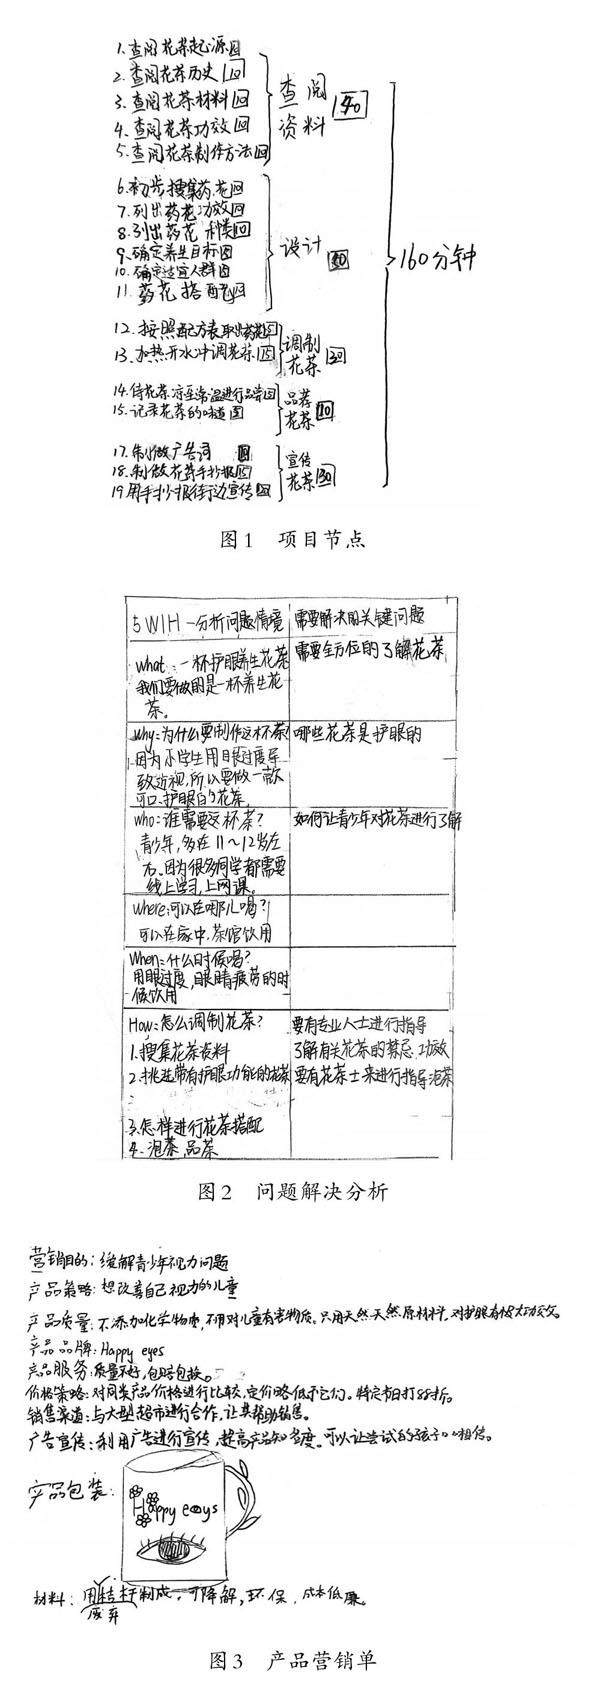 1.查阅花茶起源
2.查阅花茶历史 10
3.查阅花茶材料
4.查阅花茶功效
5.查阅花茶制作方法
查阅
资料
6.初步搜集药花
7.列出药花功效
8.列出药花种类
9.确定养生目标
10.确定适宜人群
11.药花搭配
设计
160分钟
12.按照配方表取
13.加热开水冲调花茶 15
调制
花茶 30
14.待花茶凉至常温进行品尝
15.记录花茶的味道
品茶
花茶 10
17.制做广告词
18.制做花茶手抄报 15
19.用手抄报街边宣传
宣传
花茶 30
图1 项目节点
5W1H-分析问题情境 需要解决的关键问题
what:一杯护眼养生花茶 需要全方位的了解花茶
我们要做的是一杯养生花
茶。
why:为什么要制作这杯茶? 哪些花茶是护眼的
因为小学生用眼过度导
致近视,所以要做一款
可口、护眼的花茶。
who:谁需要这杯茶? 如何让青少年对花茶进行了解
青少年,多在11~12岁左
右。因为很多同学都需要
线上学习,上网课。
where:可以在哪儿喝?
可以在家中,茶馆饮用
When:什么时候喝?
用眼过度,眼睛疲劳的时
候饮用
How:怎么调制花茶? 要有专业人士进行指导
1.搜集花茶资料 了解有关花茶的禁忌、功效
2.挑选带有护眼功能的花茶 要有花茶士来进行指导泡茶
3.怎样进行花茶搭配
4.泡茶、品茶
图2 问题解决分析
营销目的:缓解青少年视力问题
产品策略:想改善自己视力的儿童
产品质量:不添加化学物质,不用对儿童有害物质。只用天然天然原材料,对护眼有极大功效。
产品品牌:Happy eyes
产品服务:质量不好,包赔包换。
价格策略:对同类产品价格进行比较,定价略低于它们。特定节日打88折。
销售渠道:与大型超市进行合作,让其帮助销售。
广告宣传:利用广告进行宣传,提高产品知名度。可以让尝试的孩子口口相传。
产品包装:
Happy eyes
材料:用秸杆制成,可降解,环保,成本低廉。
废弃
图3 产品营销单